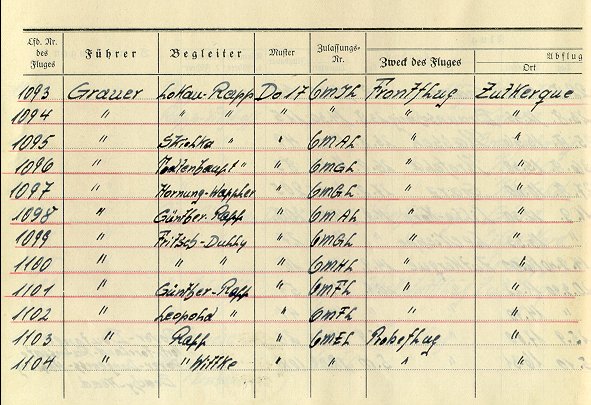 Lfd. Nr. des Fluges Führer Begleiter Muster Zulassungs-Nr. Zweck des Fluges Abflug Ort
1093 Grauer Lokau-Rapp Do 17 6MJL Frontflug Zutkerque
1094 " " " " " " "
1095 " " " 6MAL " "
1096 " " " 6MGL " "
1097 " Hornung-Wappler " 6MGL " "
1098 " Günther-Rapp " 6MAL " "
1099 " Fritsch- " 6MGL " "
1100 " " " " 6MHL " "
1101 " Günther-Rapp " 6MFL " "
1102 " Leopold " " 6MFL " "
1103 " Rapp " 6MEL Probeflug "
1104 " " Wittke " " " "